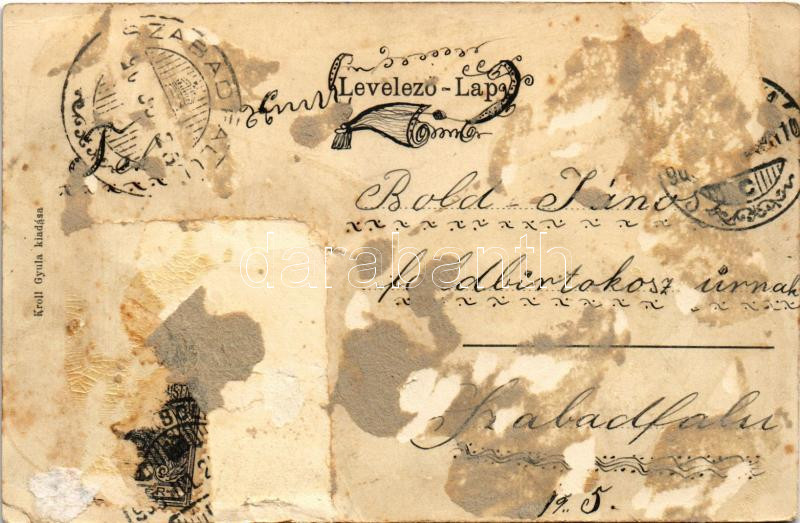 SZABADFALU
Levelező-Lap
Bold János
földbirtokosz úrnak
Szabadfalu
19 5.
Kroll Gyula kiadása
darabanth